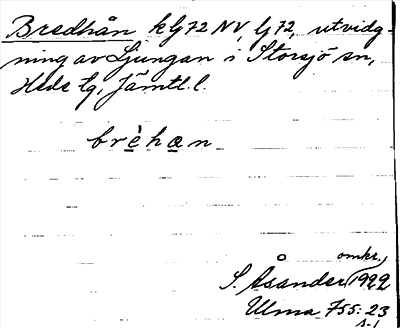 Bredhån kfg 72 NV, lg 72, utvidg-
ning av Ljungan i Storsjö sn,
Hede tg, Jämtl. l.
brèhan
omkr.,
S. Åsander, 1922
Ulma 755:23
s. 1